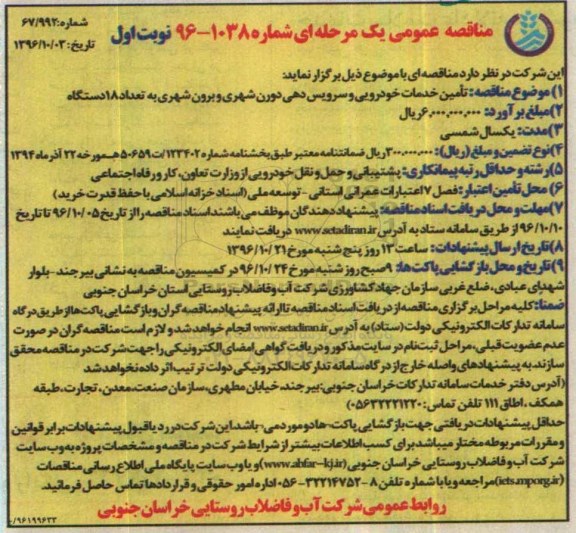 شماره: ۶۷/۹۹۲
تاریخ: ۱۳۹۶/۱۰/۰۳
مناقصه عمومی یک مرحله ای شماره ۱۰۳۸-۹۶ نوبت اول
این شرکت در نظر دارد مناقصه ای با موضوع ذیل برگزار نماید:
۱) موضوع مناقصه: تأمین خدمات خودرویی و سرویس دهی دورن شهری و برون شهری به تعداد ۱۸ دستگاه
۲) مبلغ برآورد: ۶,۰۰۰,۰۰۰,۰۰۰ ریال
۳) مدت: یکسال شمسی
۴) نوع تضمین و مبلغ (ریال): ۳۰۰,۰۰۰,۰۰۰ ریال ضمانتنامه معتبر طبق بخشنامه شماره ۱۲۳۴۰۲/ت۵۰۶۵۹هـ مورخه ۲۲ آذر ماه ۱۳۹۴
۵) رشته و حداقل رتبه پیمانکاری: پشتیبانی و حمل و نقل خودرویی از وزارت تعاون، کار و رفاه اجتماعی
۶) محل تأمین اعتبار: فصل ۷ اعتبارات عمرانی استانی - توسعه ملی (اسناد خزانه اسلامی با حفظ قدرت خرید)
۷) مهلت و محل دریافت اسناد مناقصه: پیشنهاد دهندگان موظف می باشند اسناد مناقصه را از تاریخ ۹۶/۱۰/۰۵ تا تاریخ
۹۶/۱۰/۱۰ از طریق سامانه ستاد به آدرس www.setadiran.ir دریافت نمایند
۸) تاریخ ارسال پیشنهادات: ساعت ۱۳ روز پنج شنبه مورخ ۱۳۹۶/۱۰/۲۱
۹) تاریخ و محل بازگشایی پاکت ها: ۹ صبح روز شنبه مورخ ۹۶/۱۰/۲۴ در کمیسیون مناقصه به نشانی بیرجند-بلوار
شهدای عبادی، ضلع غربی سازمان جهاد کشاورزی شرکت آب و فاضلاب روستایی استان خراسان جنوبی
ضمنا: کلیه مراحل برگزاری مناقصه از دریافت اسناد مناقصه تا ارائه پیشنهاد مناقصه گران و بازگشایی پاکت ها از طریق درگاه
سامانه تدارکات الکترونیکی دولت (ستاد) به آدرس www.setadiran.ir انجام خواهد شد و لازم است مناقصه گران در صورت
عدم عضویت قبلی، مراحل ثبت نام در سایت مذکور و دریافت گواهی امضای الکترونیکی را جهت شرکت در مناقصه محقق
سازند. به پیشنهادهای واصله خارج از درگاه سامانه تدارکات الکترونیکی دولت ترتیب اثر داده نخواهد شد
(آدرس دفتر خدمات سامانه تدارکات خراسان جنوبی: بیرجند، خیابان مطهری، سازمان صنعت، معدن، تجارت، طبقه
همکف، اطاق ۱۱۱ تلفن تماس: ۰۵۶۳۲۲۲۱۲۲۰)
حداقل پیشنهادات دریافتی جهت بازگشایی پاکت-ها دو مورد می-باشد این شرکت در رد یا قبول پیشنهادات برابر قوانین
و مقررات مربوطه مختار میباشد برای کسب اطلاعات بیشتر از شرایط شرکت در مناقصه و مشخصات پروژه به وب سایت
شرکت آب و فاضلاب روستایی خراسان جنوبی (www.abfar-kj.ir) و یا وب سایت پایگاه ملی اطلاع رسانی مناقصات
(iets.mporg.ir) مراجعه و یا با شماره تلفن ۸-۳۲۲۱۴۷۵۲-۰۵۶ اداره امور حقوقی و قراردادها تماس حاصل فرمائید.
روابط عمومی شرکت آب و فاضلاب روستایی خراسان جنوبی
۹۶۱۹۹۶۳۳/